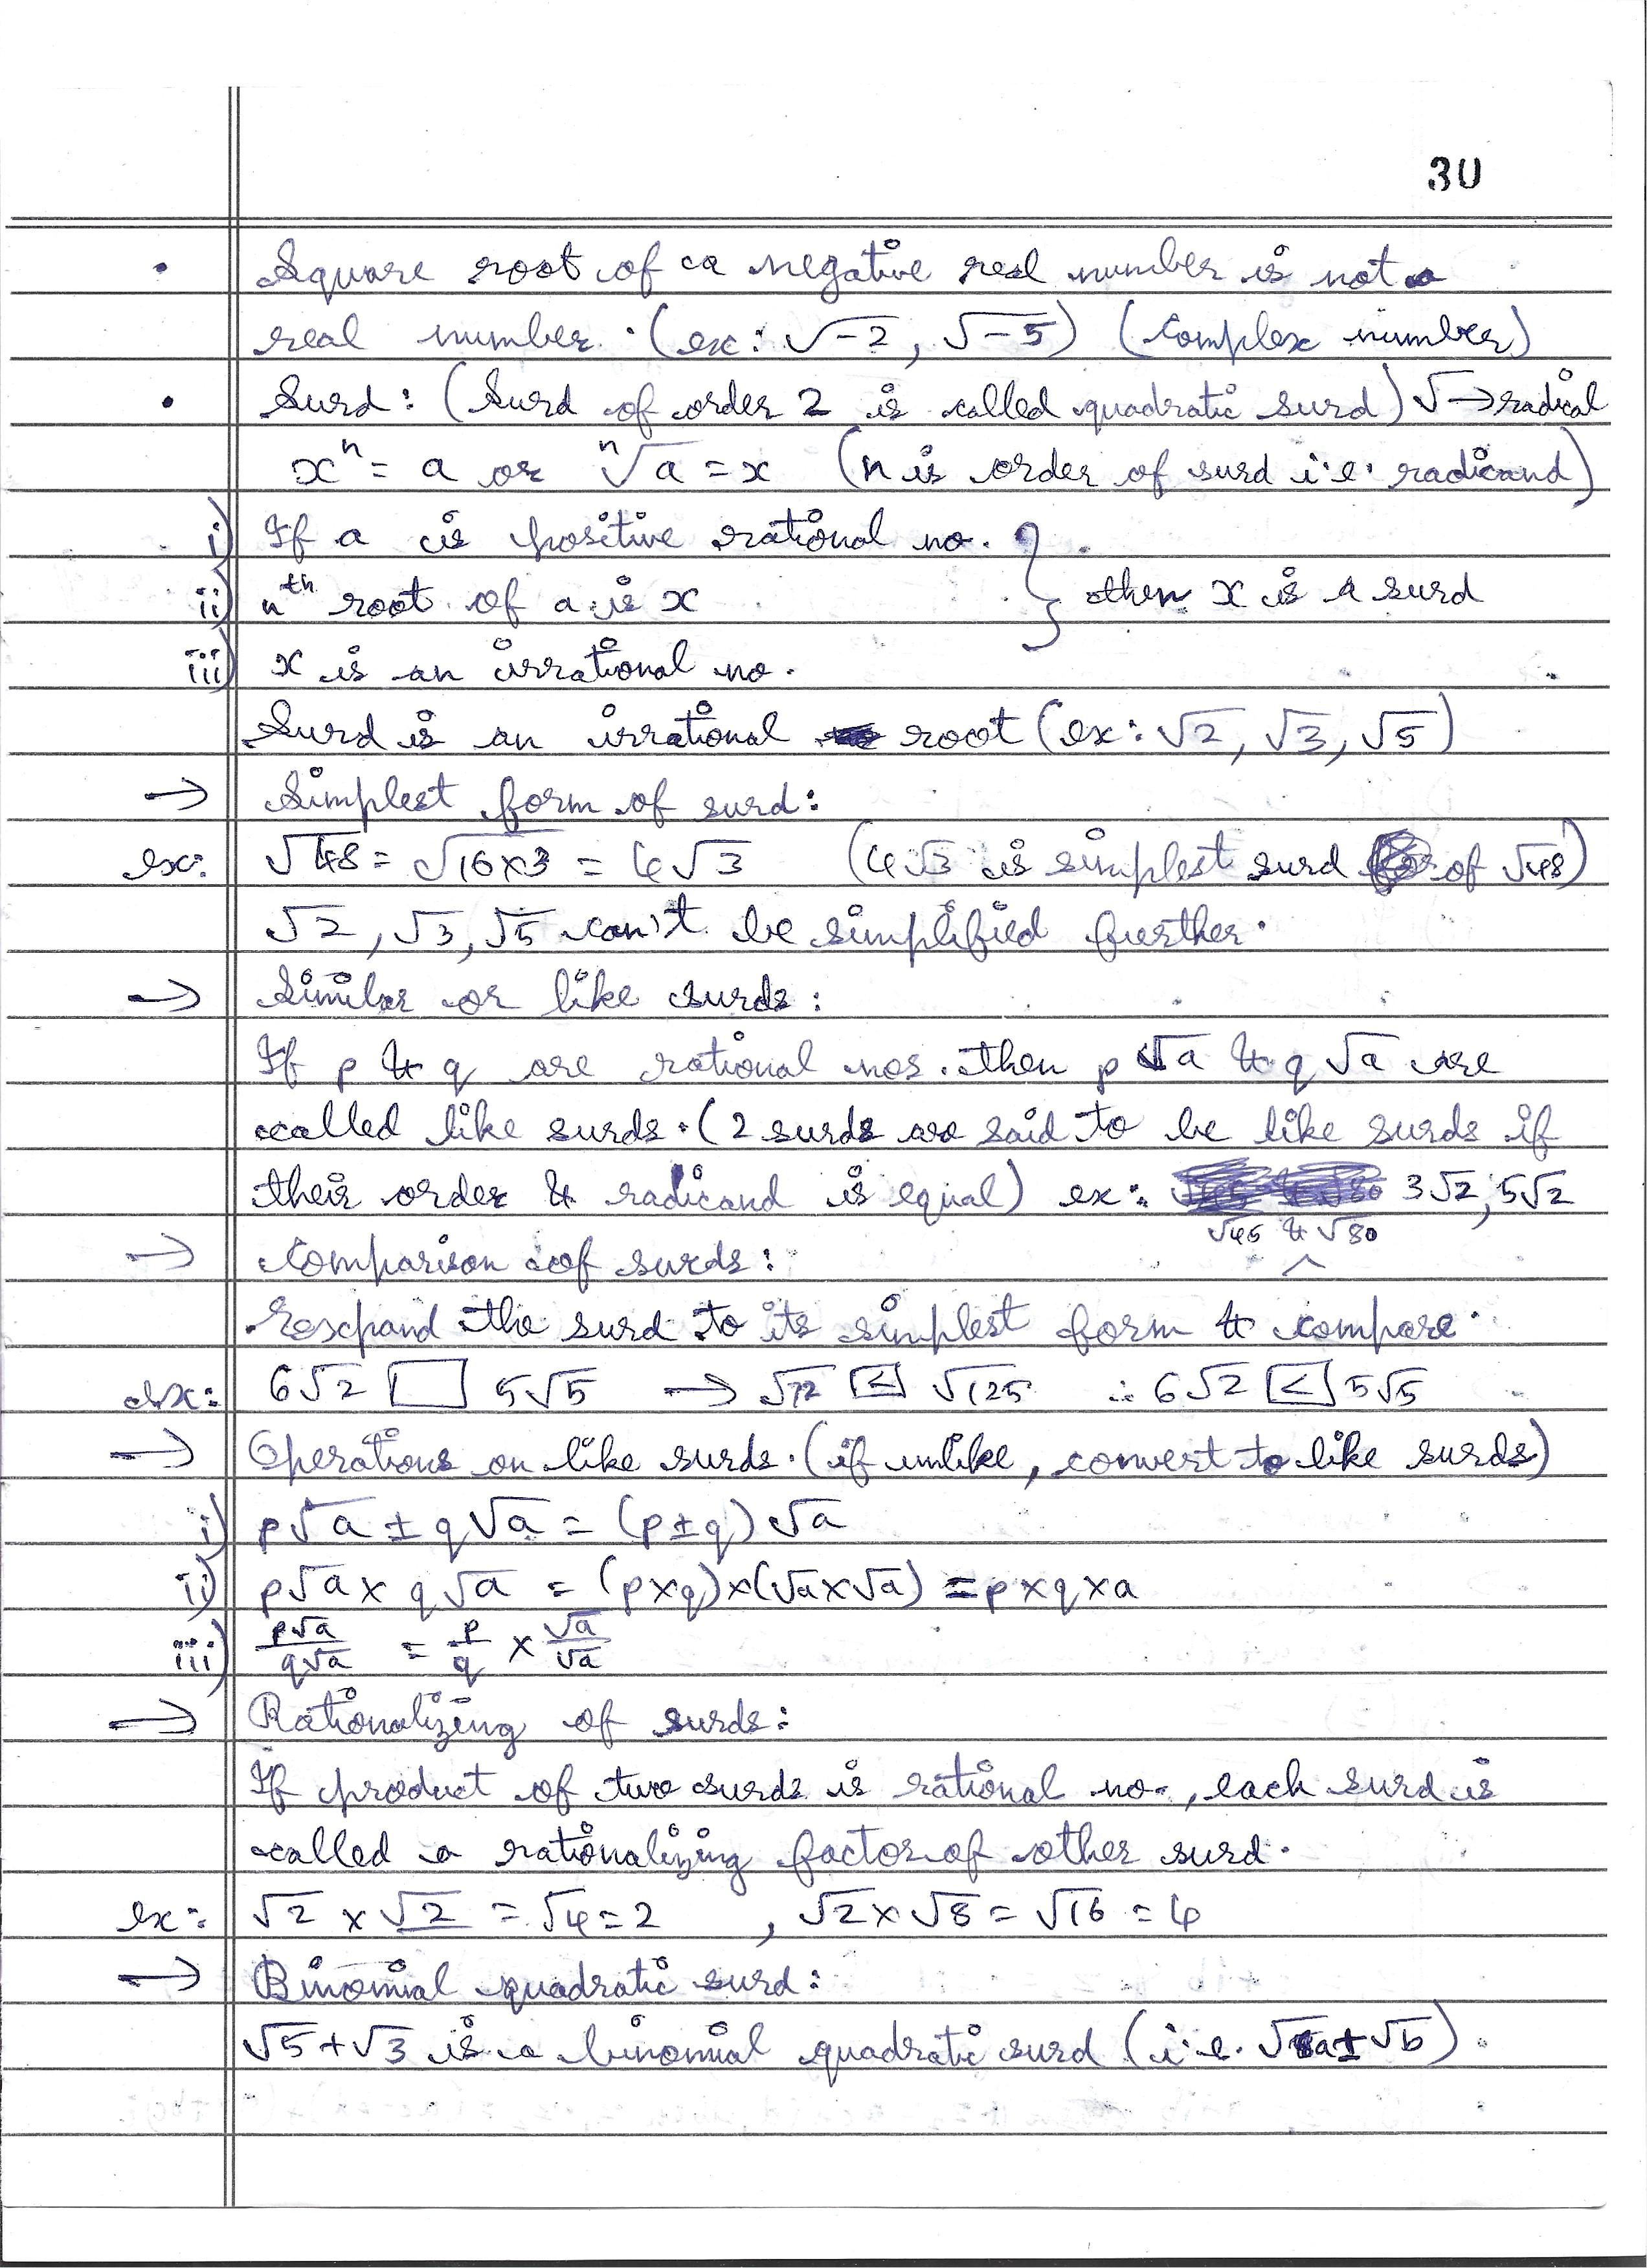 30
• Square root of a negative real number is not a
real number. (ex: √-2, √-5) (Complex number)
• Surd: (Surd of order 2 is called quadratic surd) √ → radical
xⁿ = a or ⁿ√a = x (n is order of surd i.e. radicand)
i) If a is positive rational no.
ii) nth root of a is x } then x is a surd
iii) x is an irrational no.
Surd is an irrational root (ex: √2, √3, √5)
→ Simplest form of surd:
ex: √48 = √16×3 = 4√3 (4√3 is simplest surd of √48)
√2, √3, √5 can't be simplified further.
→ Similar or like surds:
If p & q are rational nos. then p√a & q√a are
called like surds. (2 surds are said to be like surds if
their order & radicand is equal) ex: 3√2, 5√2
√45 & √80
→ Comparison of surds: ^
Expand the surd to its simplest form & compare.
ex: 6√2 □ 5√5 → √72 [<] √125 ∴ 6√2 [<] 5√5
→ Operations on like surds. (if unlike, convert to like surds)
i) p√a ± q√a = (p±q) √a
ii) p√a × q√a = (p×q)×(√a×√a) = p×q×a
iii) p√a/q√a = p/q × √a/√a
→ Rationalizing of surds:
If product of two surds is rational no., each surd is
called a rationalizing factor of other surd.
ex: √2 × √2 = √4 = 2 , √2×√8 = √16 = 4
→ Binomial quadratic surd:
√5+√3 is a binomial quadratic surd (i.e. √a ± √b).